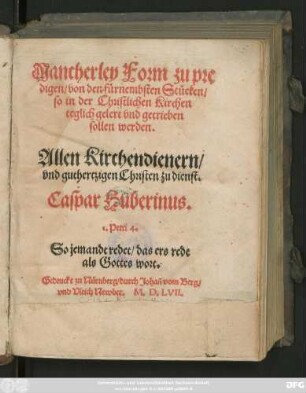 Mancherley Form zu pre
digen/ von den fürnembsten Stücken/
so in der Christlichen Kirchen
teglich gelert vnd getrieben
sollen werden.
Allen Kirchendienern/
vnd guthertzigen Christen zu dienst.
Caspar Huberinus.
1. Petri 4.
So jemandt redet/ das ers rede
als Gottes wort.
Gedruckt zu Nürmberg/ durch Johañ vom Berg/
vnd Vlrich Newber. M. D. LVII.